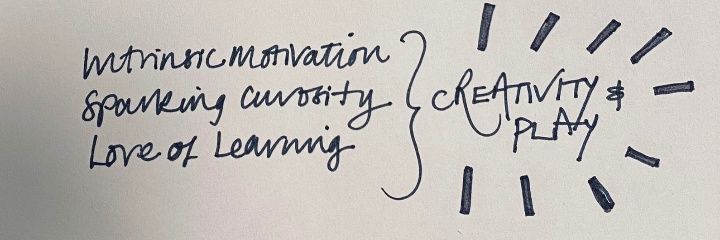 Intrinsic Motivation
Sparking Curiosity
Love of Learning
CREATIVITY &
PLAY